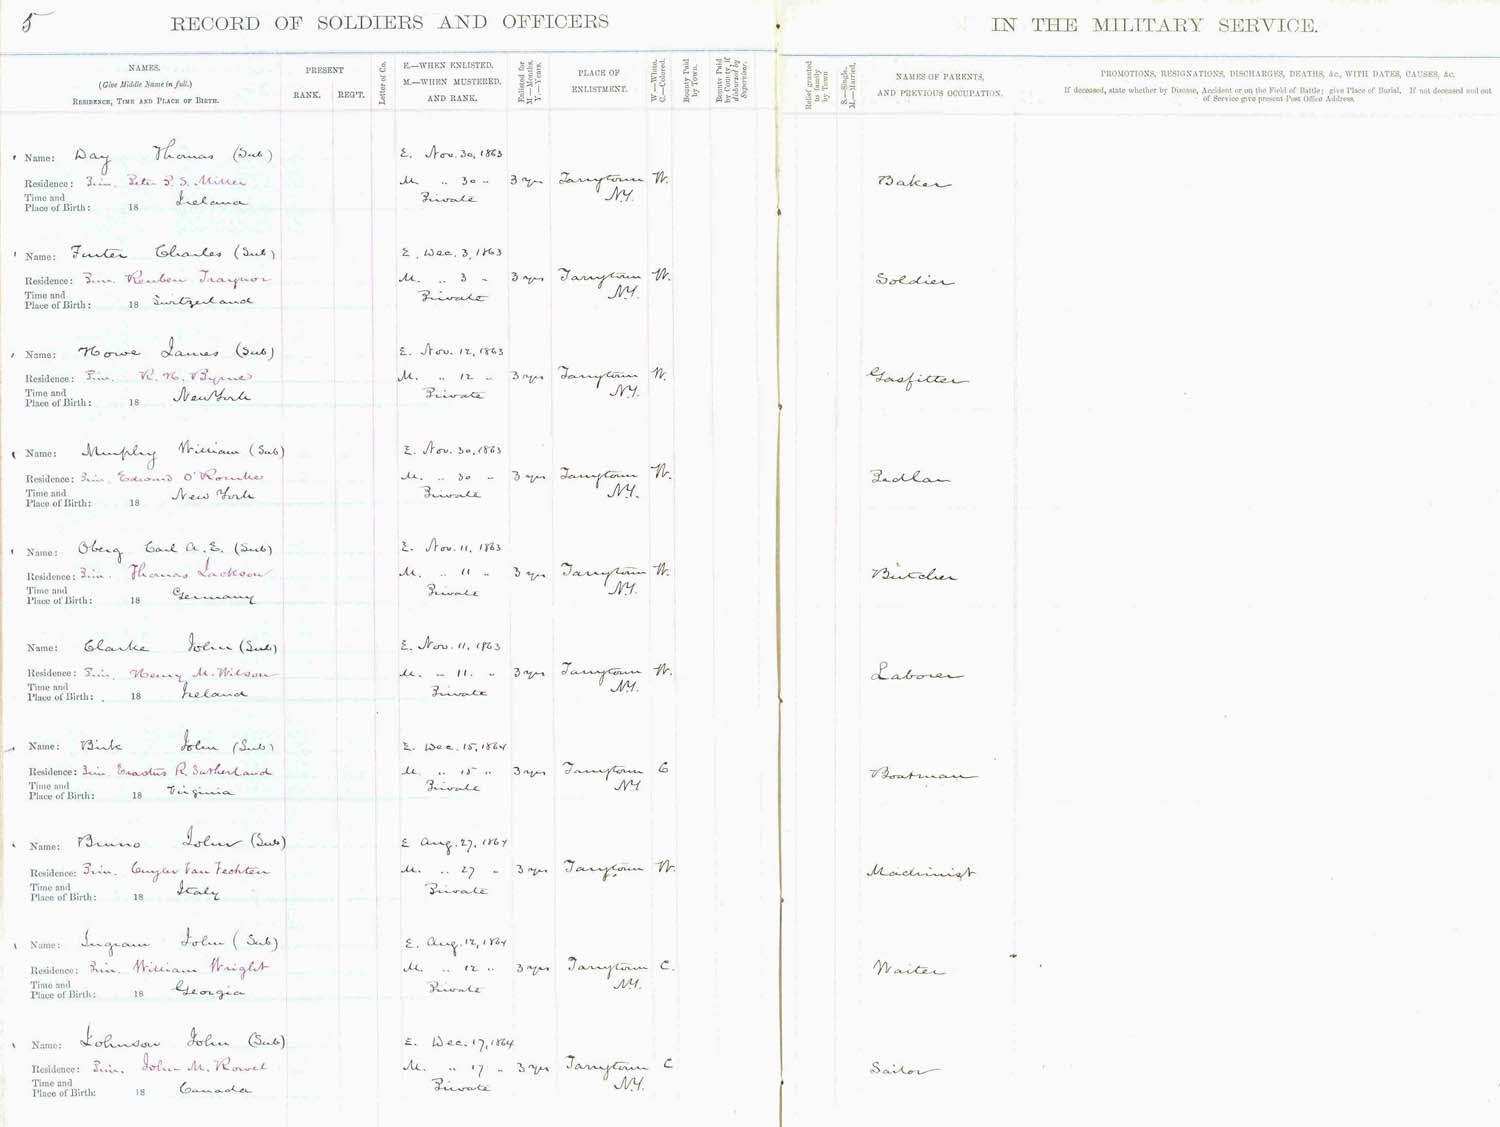 5
RECORD OF SOLDIERS AND OFFICERS IN THE MILITARY SERVICE.
NAMES.
(Give Middle Name in full.)
RESIDENCE, TIME AND PLACE OF BIRTH.
PRESENT
RANK. REG'T.
Letter of Co.
E.—WHEN ENLISTED.
M.—WHEN MUSTERED.
AND RANK.
Enlisted for
M.—Months.
Y.—Years.
PLACE OF
ENLISTMENT.
W—White.
C.—Colored.
Bounty Paid
by Town.
Bounty Paid
by County, if
disbursed by
Supervisor.
Relief granted
to family
by Town
S.—Single.
M.—Married.
NAMES OF PARENTS,
AND PREVIOUS OCCUPATION.
PROMOTIONS, RESIGNATIONS, DISCHARGES, DEATHS, &c., WITH DATES, CAUSES, &c.
If deceased, state whether by Disease, Accident or on the Field of Battle; give Place of Burial. If not deceased and out
of Service give present Post Office Address.
Name: Day Thomas (Sub) E. Nov. 30, 1863
Residence: Prin. Peter P. S. Miller M. " 30 " 3 yrs Tarrytown W. Baker
Time and
Place of Birth: 18 Ireland Private N.Y.
Name: Furter Charles (Sub) E. Dec. 3, 1863
Residence: Prin. Reuben Traynor M. " 3 " 3 yrs Tarrytown W. Soldier
Time and
Place of Birth: 18 Switzerland Private N.Y.
Name: Howe James (Sub) E. Nov. 12, 1863
Residence: Prin. R. H. Byrne M. " 12 " 3 yrs Tarrytown W. Gasfitter
Time and
Place of Birth: 18 New York Private N.Y.
Name: Murphy William (Sub) E. Nov. 30, 1863
Residence: Prin. Edward O'Rourke M. " 30 " 3 yrs Tarrytown W. Pedlar
Time and
Place of Birth: 18 New York Private N.Y.
Name: Oberg Carl A. E. (Sub) E. Nov. 11, 1863
Residence: Prin. Thomas Jackson M. " 11 " 3 yrs Tarrytown W. Butcher
Time and
Place of Birth: 18 Germany Private N.Y.
Name: Clarke John (Sub) E. Nov. 11, 1863
Residence: Prin. Henry M. Wilson M. " 11. " 3 yrs Tarrytown W. Laborer
Time and
Place of Birth: 18 Ireland Private N.Y.
Name: Birk John (Sub) E. Dec. 15, 1864
Residence: Prin. Erastus R. Sutherland M. " 15 " 3 yrs Tarrytown C Boatman
Time and
Place of Birth: 18 Virginia Private N.Y
Name: Bruno John (Sub) E Aug. 27, 1864
Residence: Prin. Cuyler Van Vechten M. " 27 " 3 yrs Tarrytown W. Machinist
Time and
Place of Birth: 18 Italy Private
Name: Ingram John (Sub) E. Aug. 12, 1864
Residence: Prin. William Wright M. " 12 " 3 yrs Tarrytown C. Waiter
Time and
Place of Birth: 18 Georgia Private N.Y.
Name: Johnson John (Sub) E. Dec. 17, 1864
Residence: Prin. John M. Rowel M. " 17 " 3 yrs Tarrytown C Sailor
Time and
Place of Birth: 18 Canada Private N.Y.